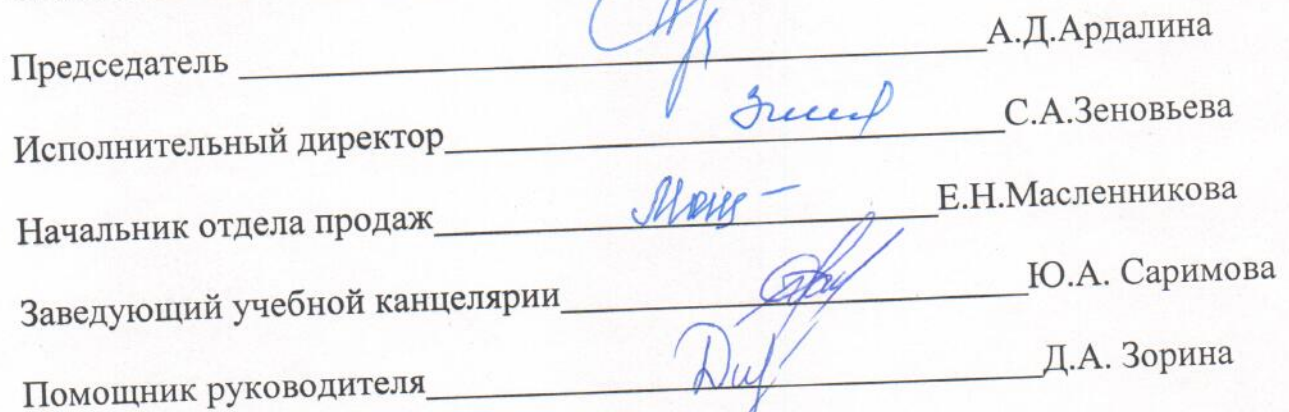 Председатель А.Д.Ардалина
Исполнительный директор С.А.Зеновьева
Начальник отдела продаж Е.Н.Масленникова
Заведующий учебной канцелярии Ю.А. Саримова
Помощник руководителя Д.А. Зорина